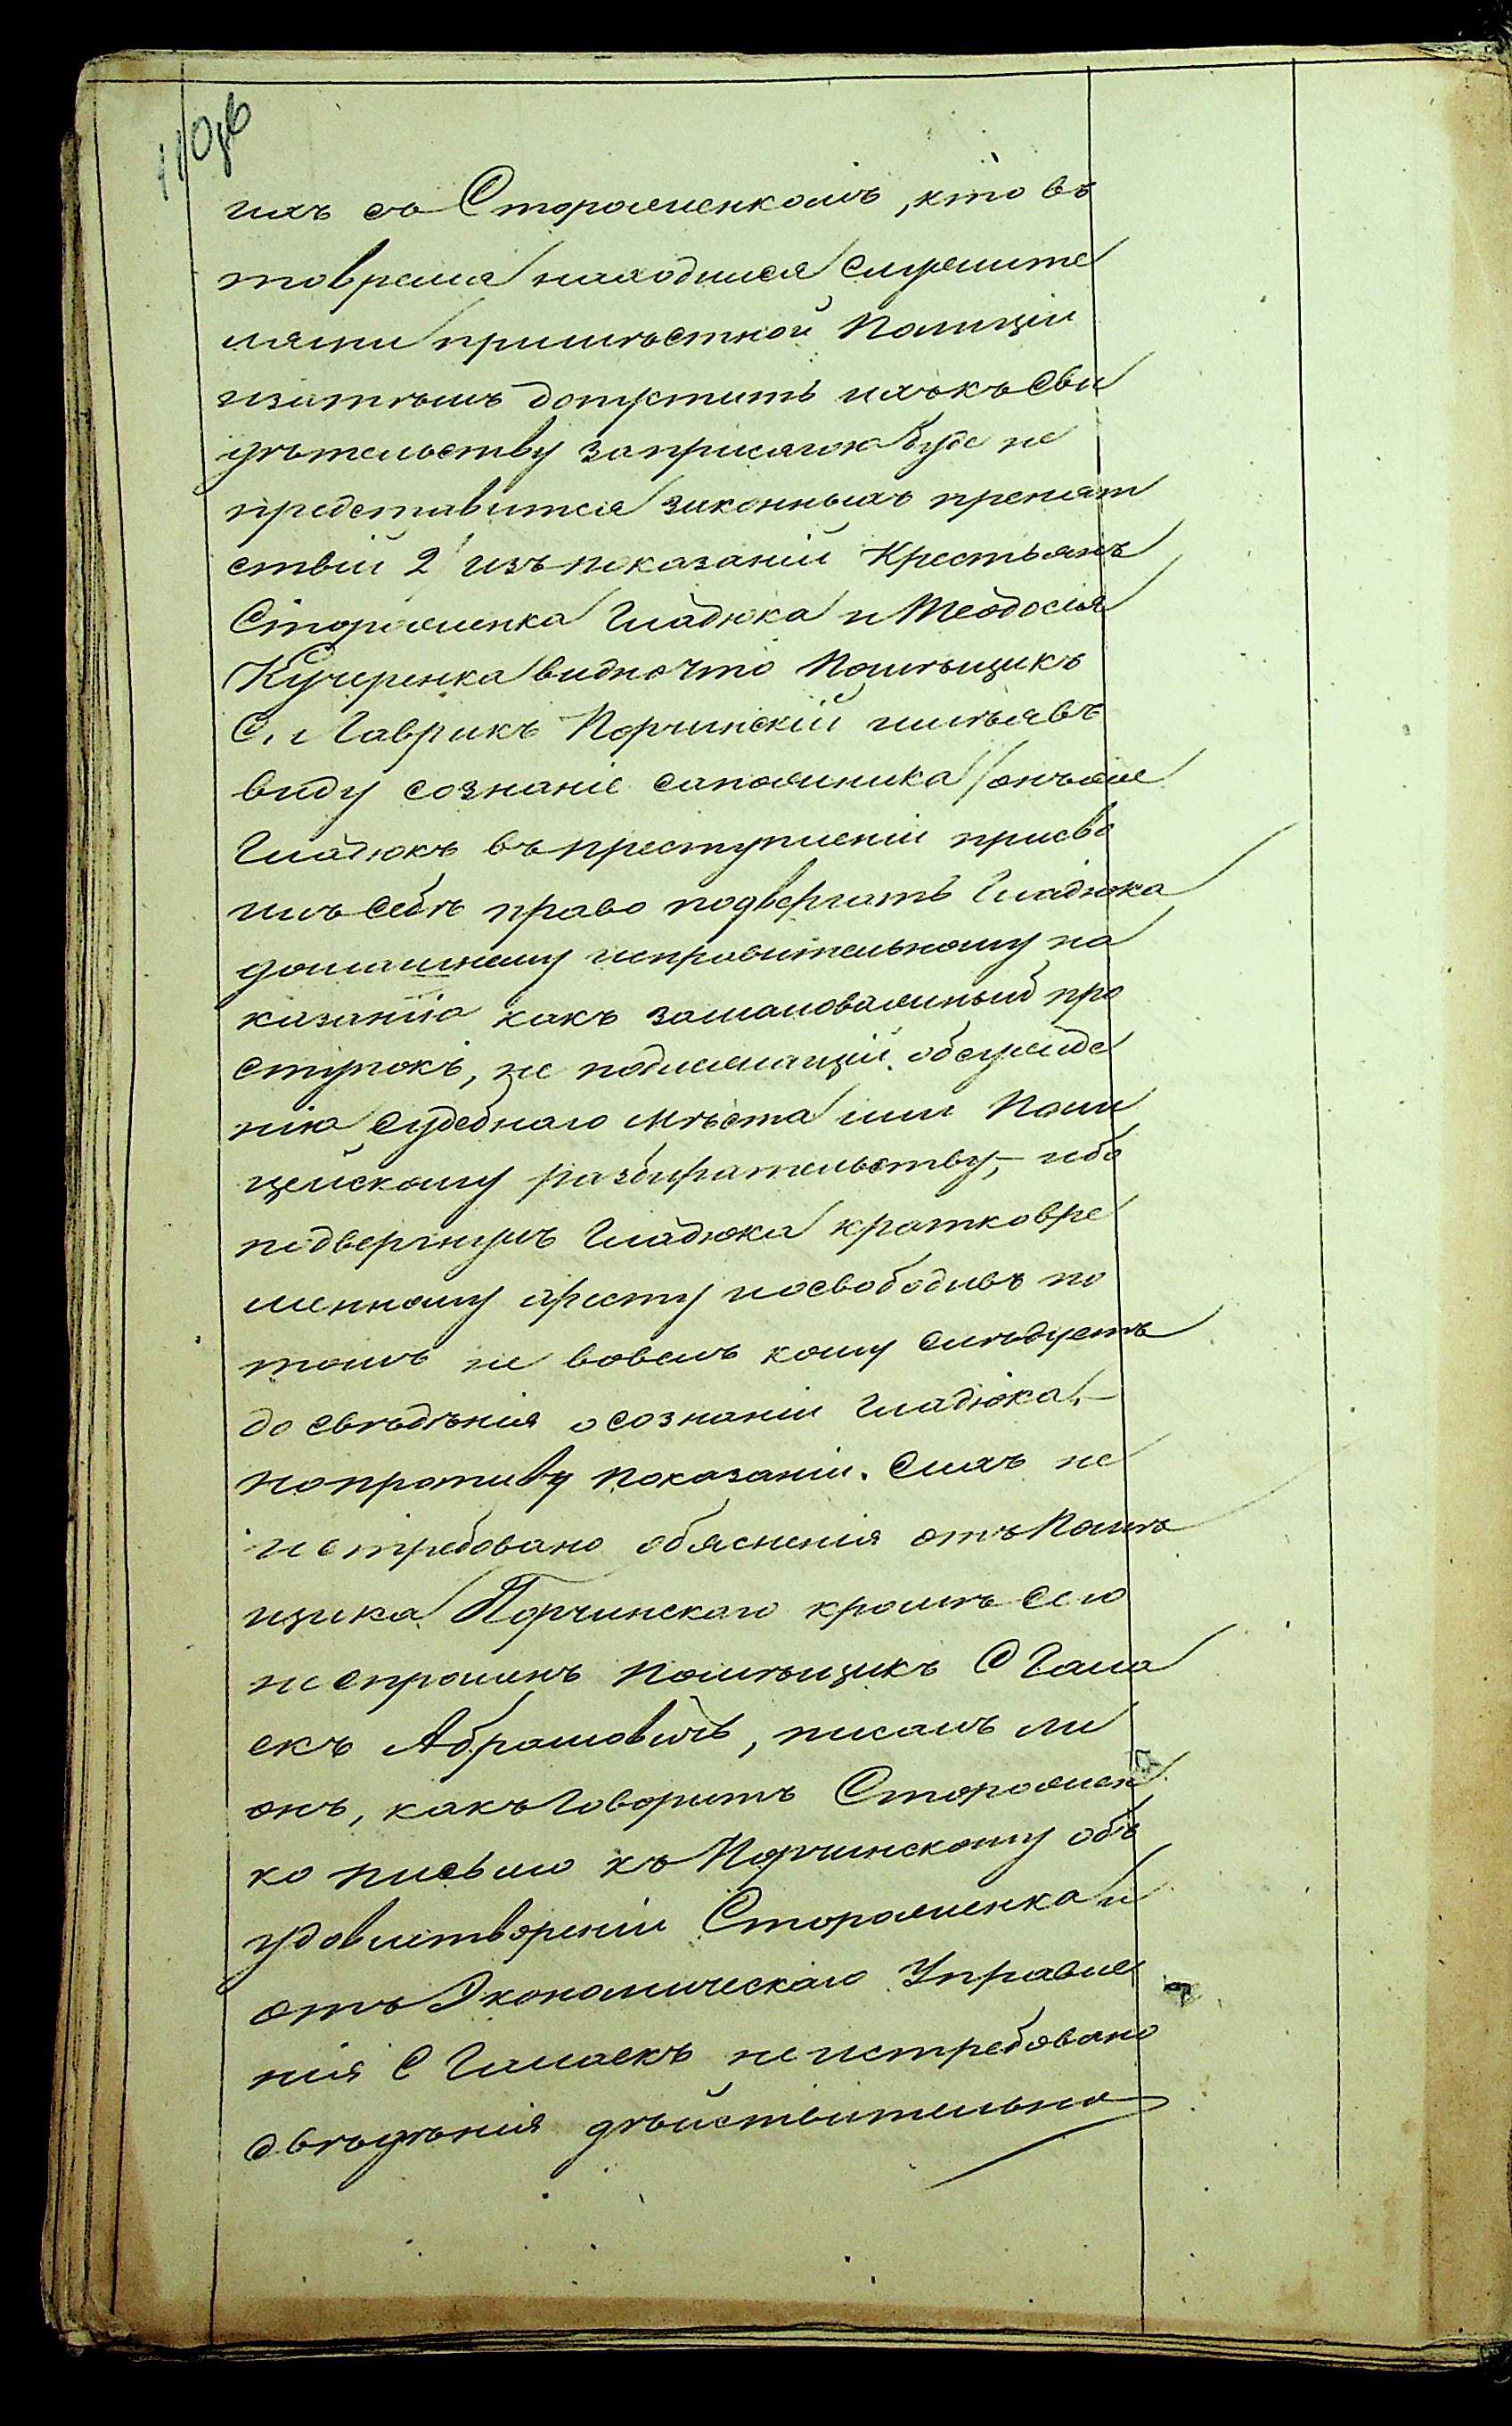 110об
ихъ со Стороженкомъ, кто въ
товремя находился служите
лями приместной Полиціи
изатѣмъ допустить ихъкъ Сви
дѣтельству заприсягою буде не
представится законныхъ препят
ствій 2/ изъ показаній Крестьянъ
Стороженка Гладюка и Теодосія
Кучеренка видно что Помѣщикъ
С. Гаврикъ Порчинскій имѣявъ
виду сознаніе сапожника /онъже
Гладюкъ въ преступленіи присво
илъ себѣ право подвергать Гладюка
домашнему исправительному на
казанію какъ замаловажный про
ступокъ, не подлежащій обсужде
нію Судебнаго мѣста или Поли
цейскому разбирательству, – ибо
подвергнулъ Гладюка кратковре
менному аресту иосвободивъ по
томъ не довелъ кому слѣдуетъ
до свѣдѣнія о сознаніи Гладюка. –
нопротиву показаній. Сихъ не
истребовано обясненія отъ Помѣ
щика Порчинскаго кромѣ сего
неспрошенъ Помѣщикъ С Гама
екъ Абрамовичъ, писалъ ли
онъ, какъ говоритъ Сторожен
ко письмо къ Порчинскому объ
удовлетвореніи Стороженка и
отъ Экономическаго Управле
нія С Гамаекъ неистребовано
свѣдѣнія дѣйствительно